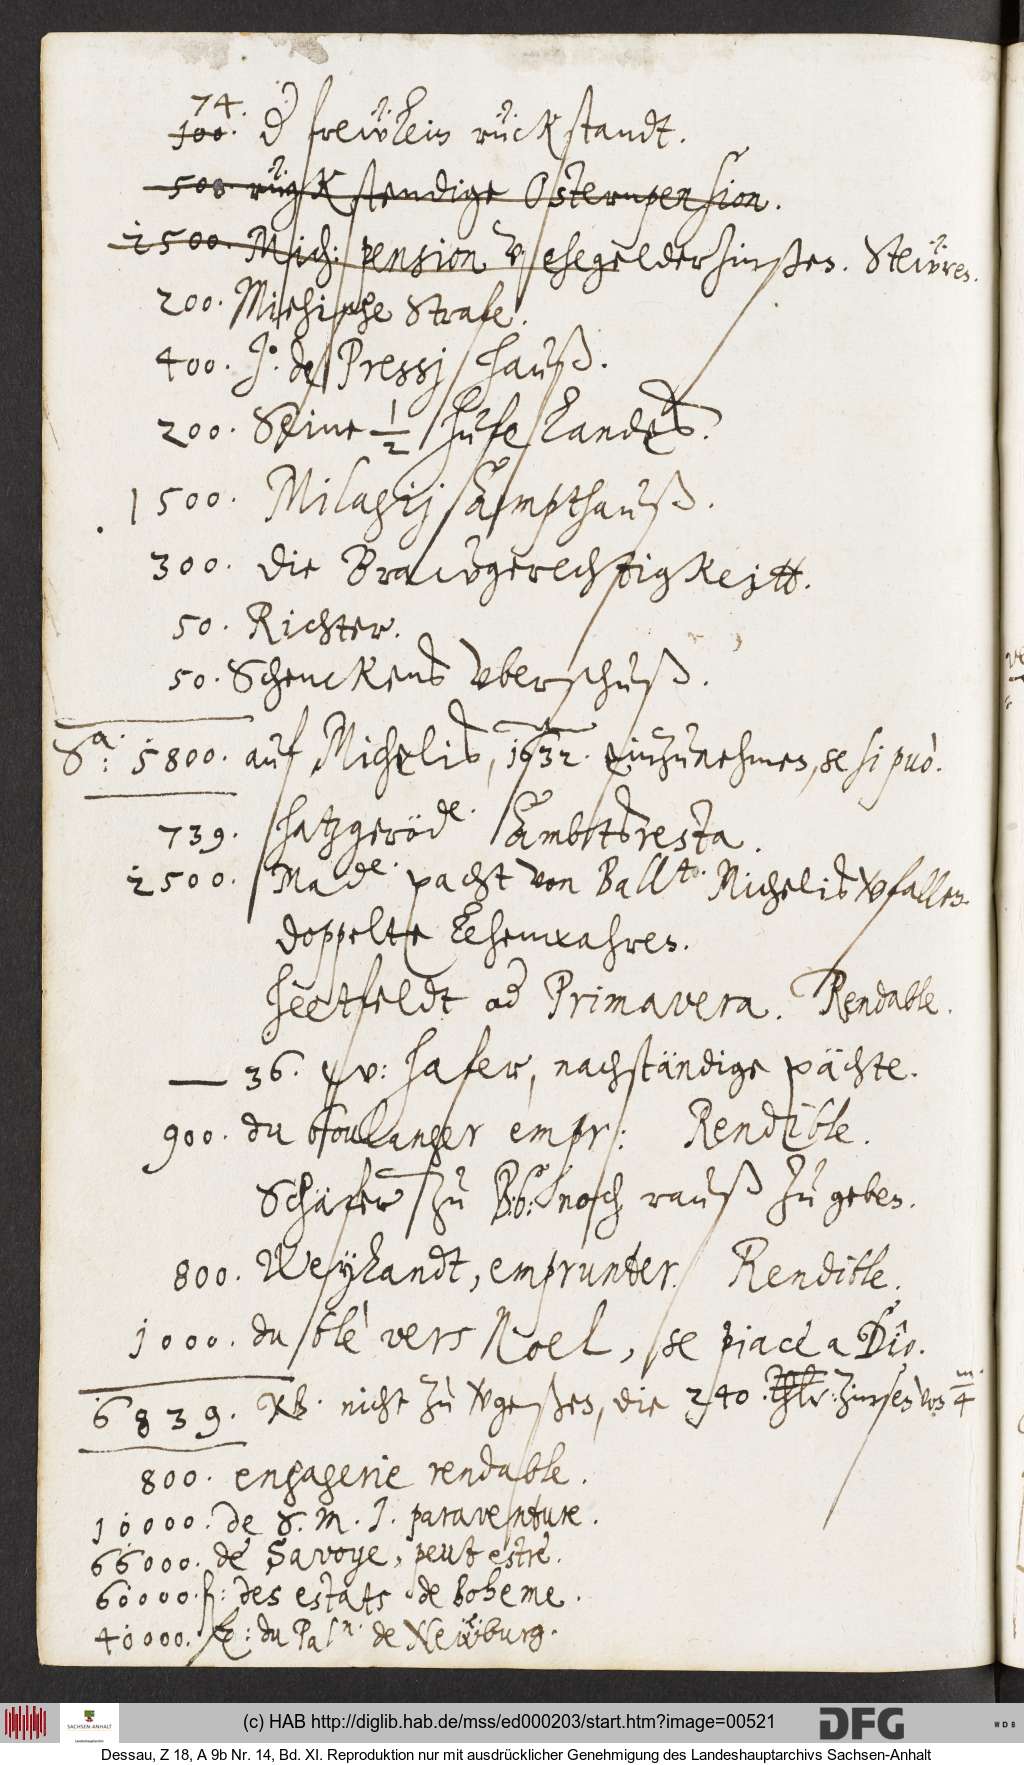 74.
100. d freẅlein rückstandt.
500. rügkstendige Osternpension.
2500. Mich: pension v ehegelder hinßen. Steẅren.
200. Michische Strafe.
400. J. de Pressj hauß.
200. Seine 1/2 hufe Landes.
1500. Milagij Ampthauß.
300. die Brawgerechtigkeitt.
50. Richter.
50. Schenckens vberschuß.
Sa: 5800. auf Michelis, 1632. einzunehmen, se si può.
739. hatzgeröde. Ambtsresta.
2500. Made. pacht von Ballt. Michelis vfallen
doppelte Lehenwahren.
heetfeldt od Primavera. Rendable.
36. w: hafer, nachständige pächte.
900. du boulanger empr: Rendible.
Schäfer zu Bb: noch rauß zu geben.
800. Weylandt, emprunter. Rendible.
1000. du blè vers Noel, se piace a Dio.
6839. NB. nicht zu vgeßen, die 240. Thlr: zinsen von m/4
800. engagerie rendable.
10000. de S. M. I. paraventure.
66000. de Savoye, peut estre.
60000. fl: des estats de boheme.
40000. fl: du Paln. de Neẅburg.
(c) HAB http://diglib.hab.de/mss/ed000203/start.htm?image=00521
SACHSEN-ANHALT
DFG
WDB
Dessau, Z 18, A 9b Nr. 14, Bd. XI. Reproduktion nur mit ausdrücklicher Genehmigung des Landeshauptarchivs Sachsen-Anhalt